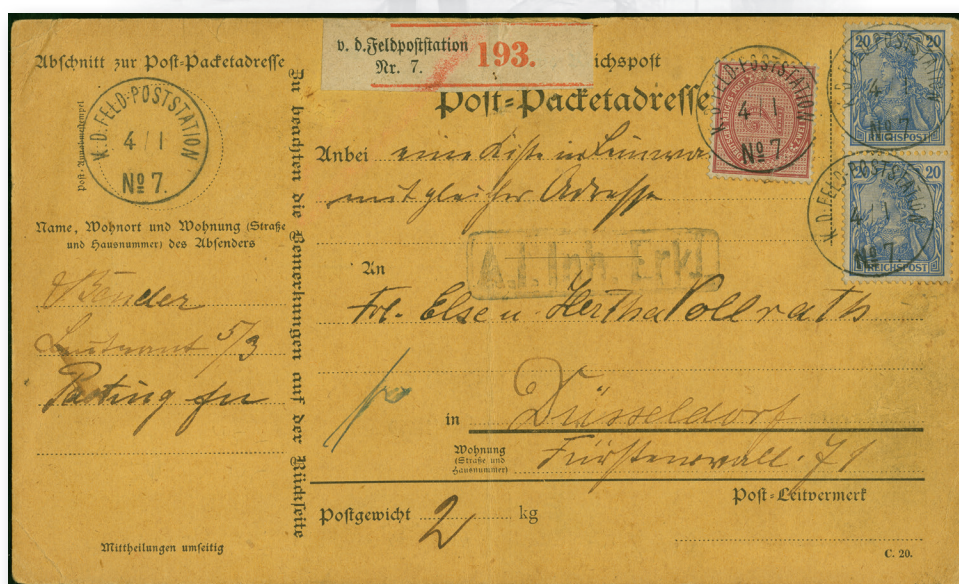 Abschnitt zur Post-Packetadresse
K.D.FELD-POSTSTATION
4 / 1
No 7.
Post-Annahmestempel
Name, Wohnort und Wohnung (Straße
und Hausnummer) des Absenders
Bender
Leutnant 5/3
Paoting fu
Mittheilungen umseitig
Zu beachten die Bemerkungen auf der Rückseite
v. d. Feldpoststation
Nr. 7.
193.
ichspost
Post-Packetadresse
K.D.FELD-POSTSTATION
4 / 1
No 7.
20 20
REICHSPOST
K.D.FELD-POSTSTATION
4 / 1
No 7.
20
REICHSPOST
Anbei eine Kiste in Leinwa
mit gleicher Adresse
A. I. Inh. Erkl.
An
Frl. Else u. Hertha Vollrath
in Düsseldorf
Wohnung
(Straße und
Hausnummer)
Fürstenwall. 71
Postgewicht 2 kg
Post-Leitvermerk
C. 20.